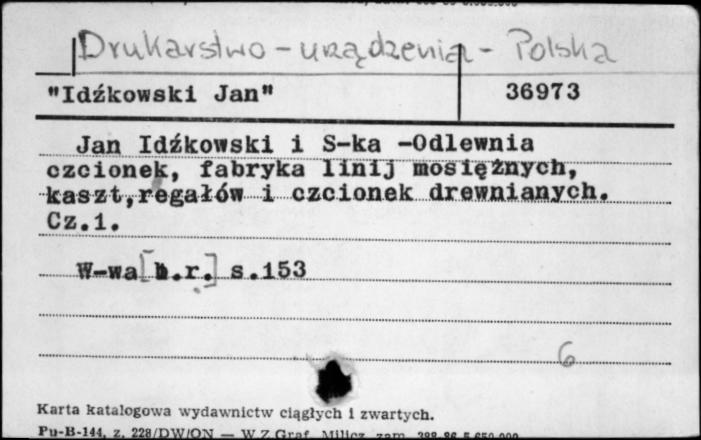 Drukarstwo - urządzenia - Polska
"Idźkowski Jan" 36973
Jan Idźkowski i S-ka -Odlewnia
czcionek, fabryka linij mosiężnych,
kaszt,regałów i czcionek drewnianych.
Cz.1.
W-wa [b.r.] s.153
6
Karta katalogowa wydawnictw ciągłych i zwartych.
Pu-B-144, z. 228/DW/ON — W.Z.Graf. Milicz, zam.